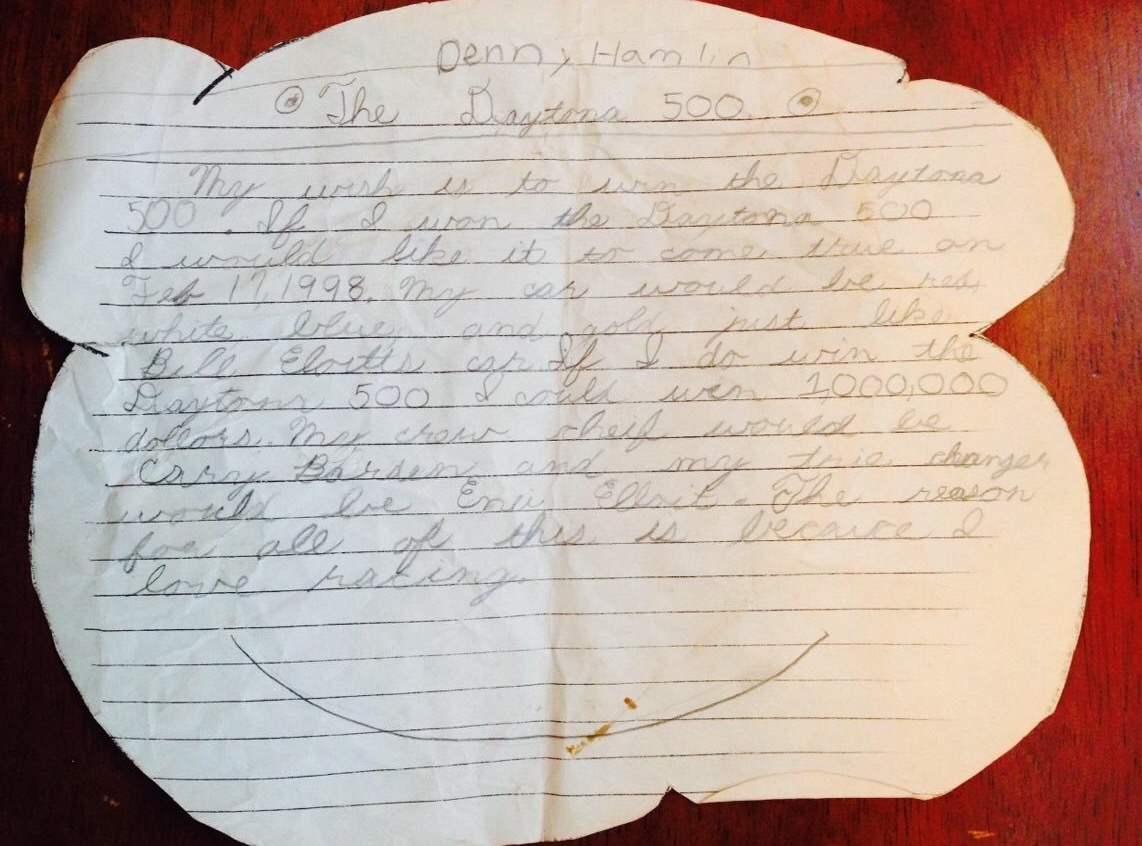 Denny Hamlin
The Daytona 500
My wish is to win the Daytona
500. If I won the Daytona 500
I would like it to come true on
Feb 17, 1998. My car would be red,
white blue, and gold just like
Bill Eloitts car. If I do win the
Daytona 500 I could win 1,000,000
dollars. My crew cheif would be
and my changer
would be Elloit. The reason
for all of this is I
love racing.